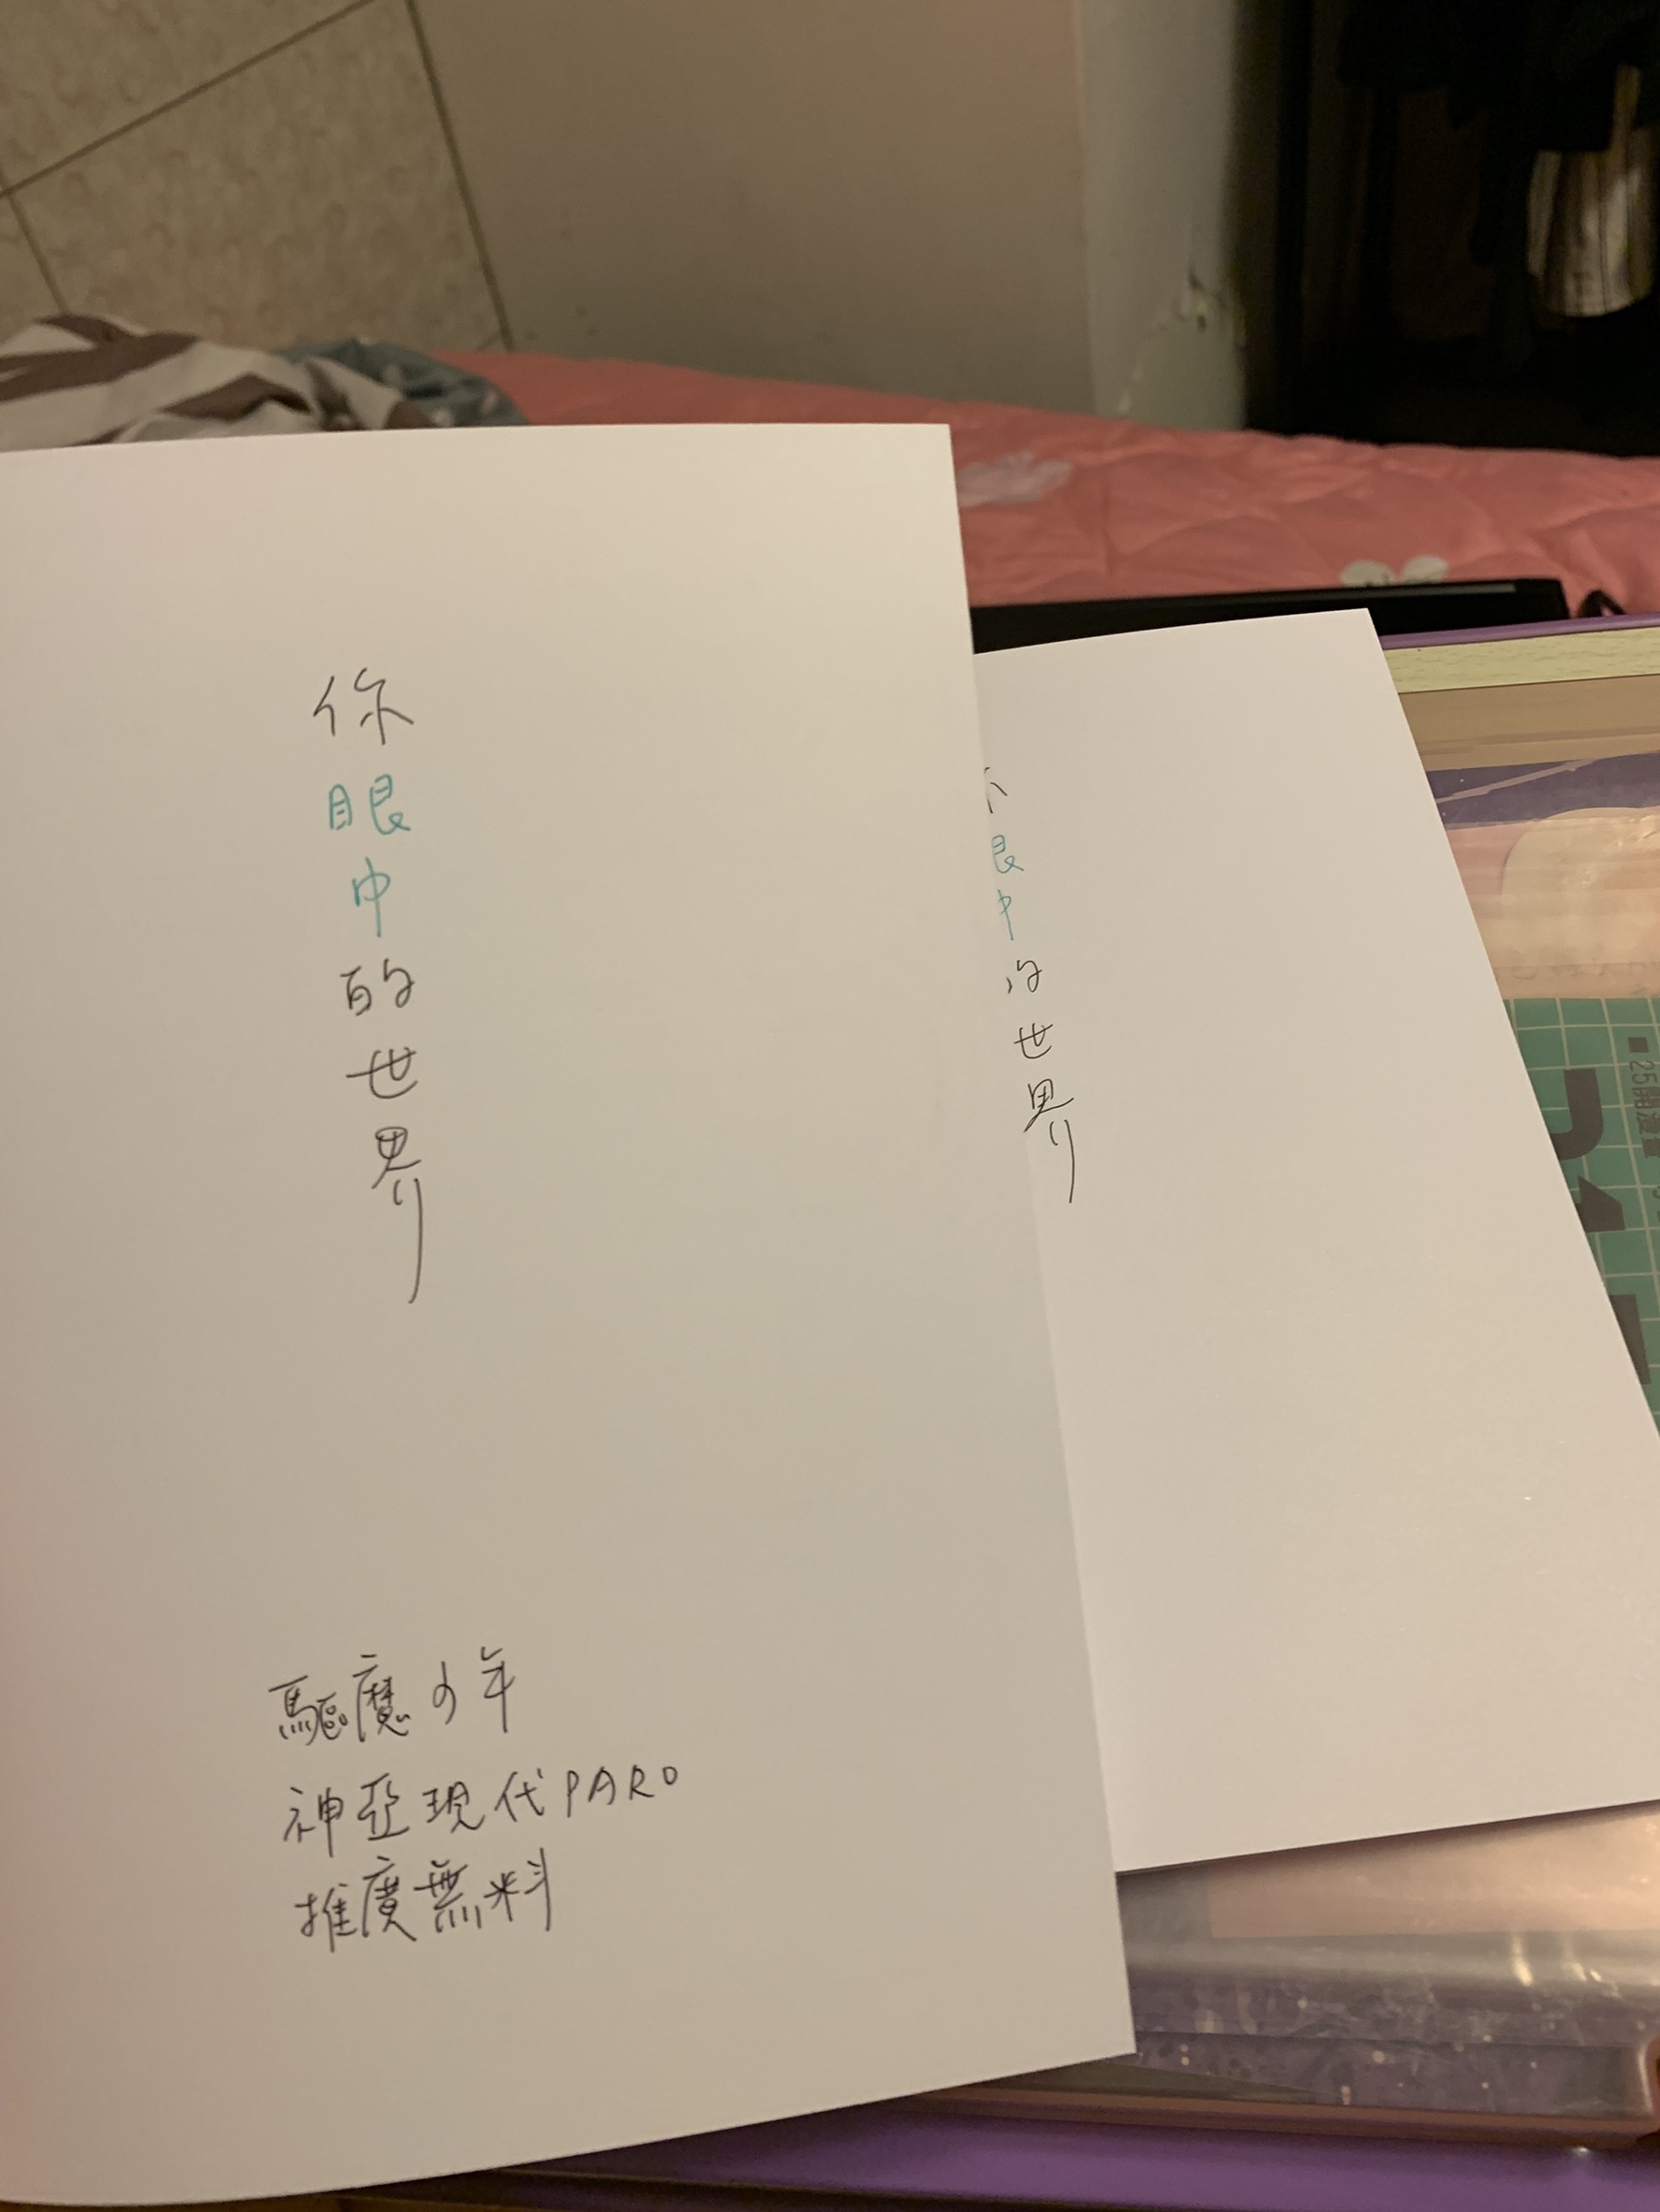 你眼中的世界
驅魔少年
神亞現代PARO
推廣無料
眼中的世界
25開